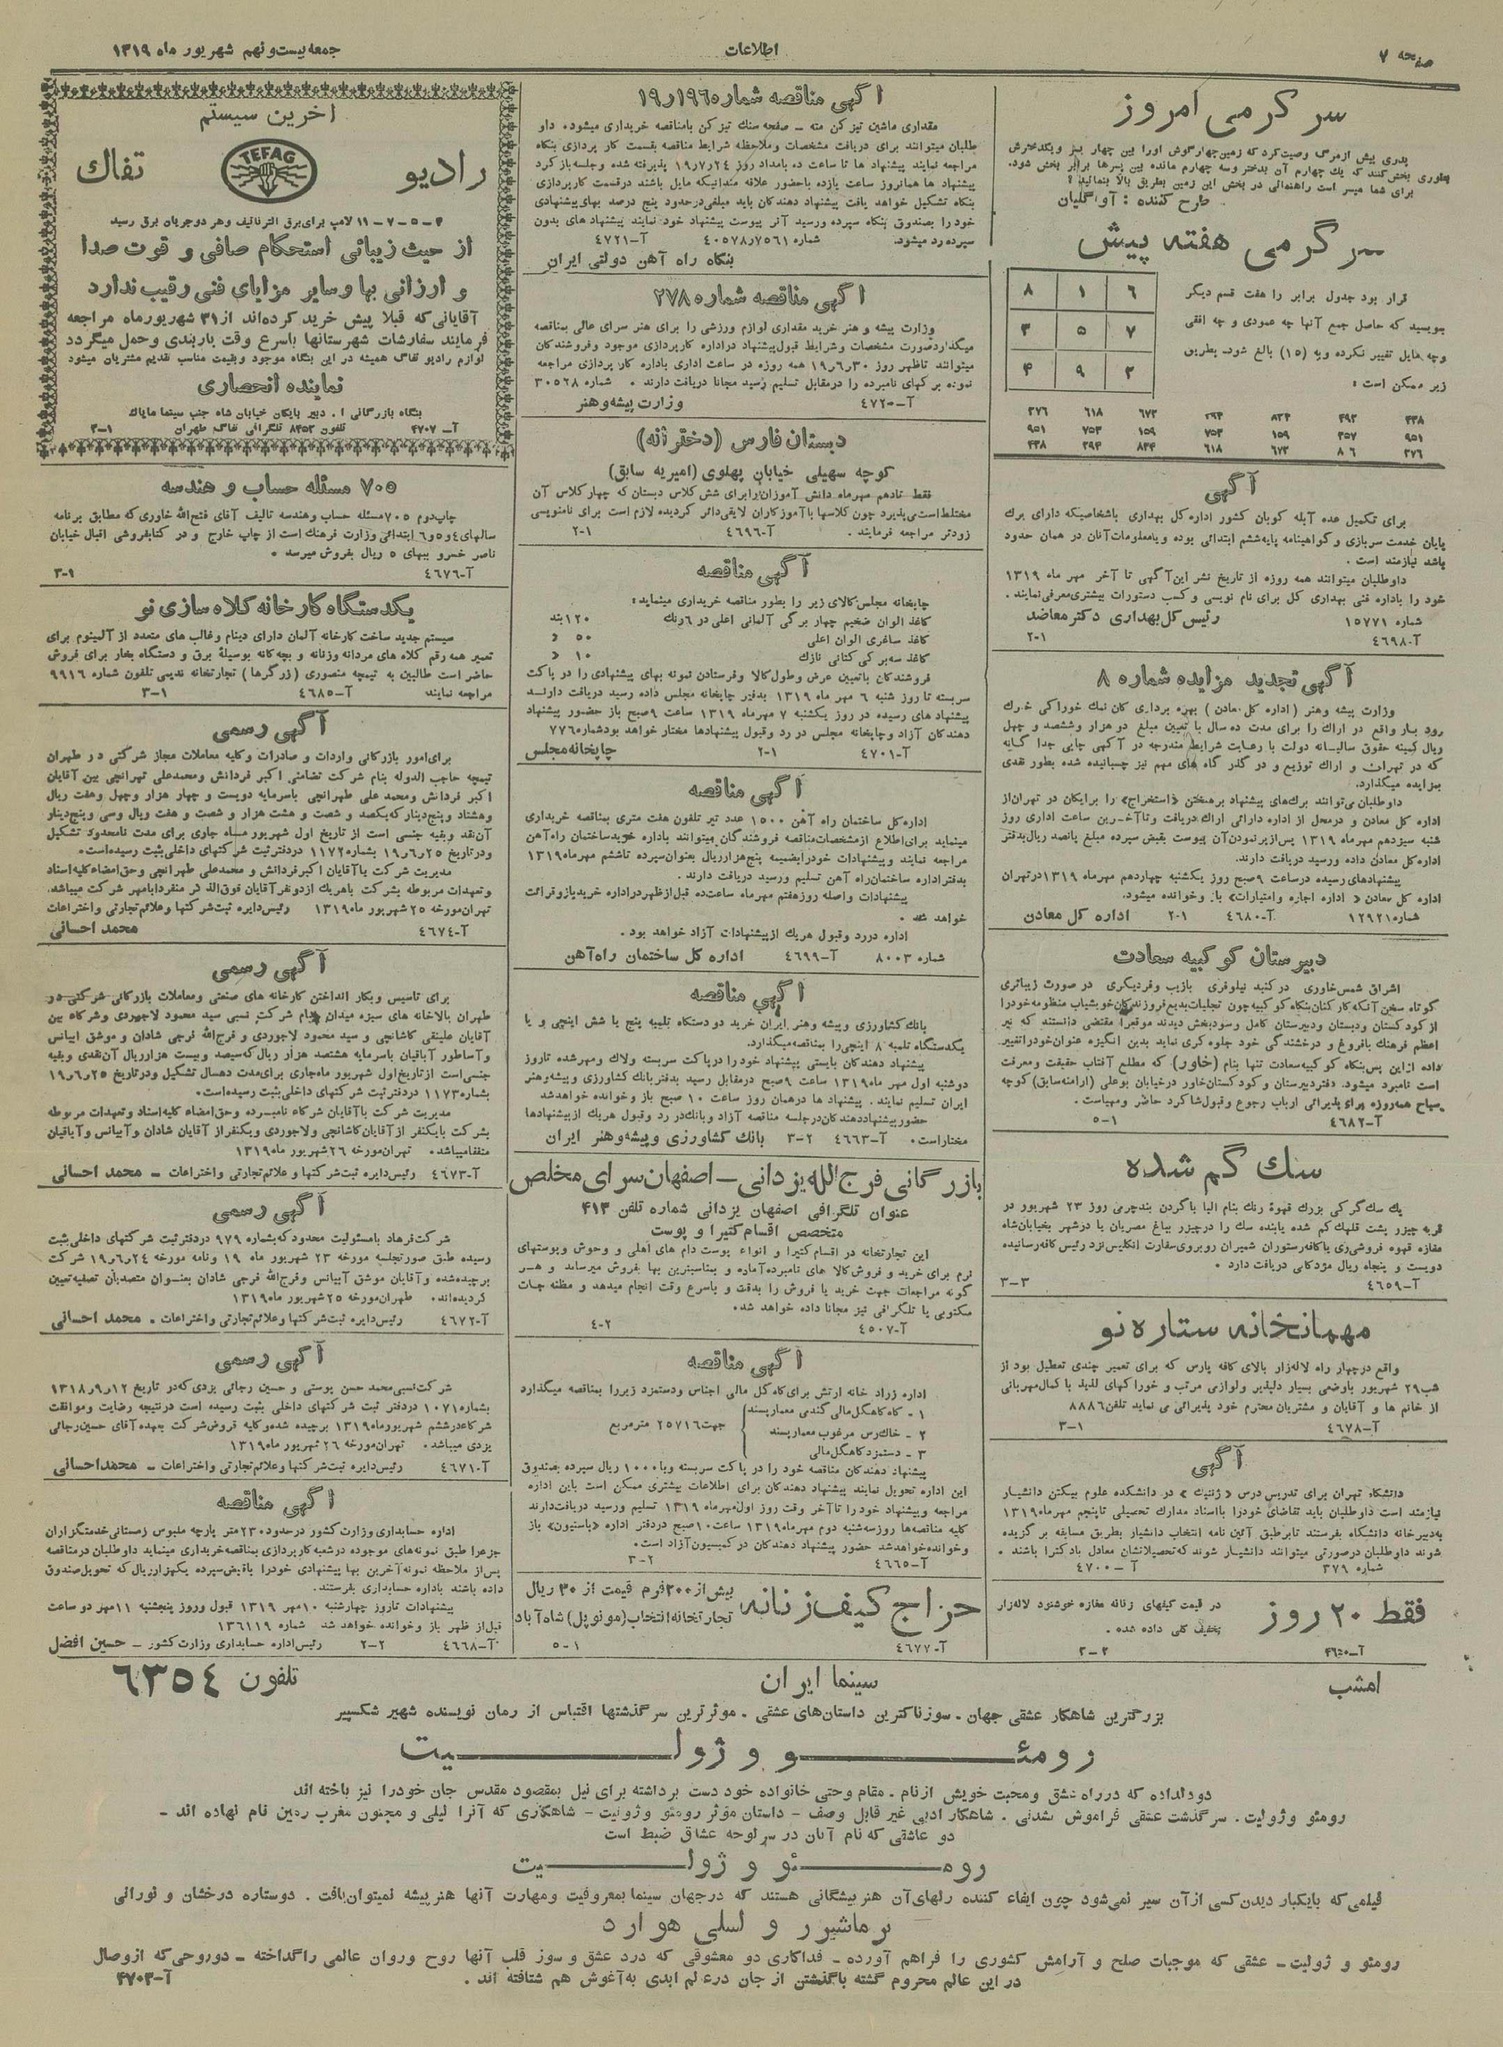 صفحه ۷
اطلاعات
جمعه بیست و نهم شهریور ماه ۱۳۱۹
سر گرمی امروز
پدری پیش از مرگ وصیت کرد که زمین چهار گوش اورا بین چهار پسر و یکدخترش
بطوری بخش کنند که یك چهارم آن بدختر وسه چهارم مانده بین پسرها برابر بخش شود.
برای شما میسر است راهنمائی در بخش این زمین بطریق بالا بنمائید؟
طرح کننده : آوا گلیان
سر گرمی هفته پیش
قرار بود جدول برابر را هفت قسم دیگر
بنویسید که حاصل جمع آنها چه عمودی و چه افقی
وچه مایل تغییر نکرده وبه (۱۵) بالغ شود. بطریق
زیر ممکن است :
۸ ۱ ۶
۳ ۵ ۷
۴ ۹ ۲
۲۷۶ ۶۱۸ ۶۷۲ ۲۹۴ ۸۳۴ ۴۹۲ ۴۳۸
۹۵۱ ۷۵۳ ۱۵۹ ۷۵۳ ۱۵۹ ۳۵۷ ۹۵۱
۴۳۸ ۲۹۴ ۸۳۴ ۶۱۸ ۶۷۲ ۸۱۶ ۲۷۶
آگهی
برای تکمیل عده آبله کوبان کشور اداره کل بهداری باشخاصیکه دارای برك
پایان خدمت سربازی و گواهینامه پایه ششم ابتدائی بوده ویامعلومات آنان در همان حدود
باشد نیازمند است .
داوطلبان میتوانند همه روزه از تاریخ نشر این آگهی تا آخر مهر ماه ۱۳۱۹
خود را باداره فنی بهداری کل برای نام نویسی و کسب دستورات بیشتری معرفی نمایند .
شماره ۱۵۷۷۱ رئیس کل بهداری دکتر معاضد
آ-۴۶۹۸ ۲-۱
آگهی تجدید مزایده شماره ۸
وزارت پیشه وهنر ( اداره کل معادن ) بهره برداری کان نمك خوراکی خرك
رود بار واقع در اراك را برای مدت ده سال با تعیین مبلغ دو هزار وششصد و چهل
ریال کمینه حقوق سالیانه دولت با رعایت شرایط مندرجه در آگهی چاپی جدا گانه
که در تهران و اراك توزیع و در گذر گاه های مهم نیز چسبانیده شده بطور نقدی
بمزایده میگذارد.
داوطلبان می توانند برك های پیشنهاد برهمخش (استخراج) را برایگان در تهران از
اداره کل معادن و درمحل از اداره دارائی اراك دریافت وتاآخرین ساعت اداری روز
شنبه سیزدهم مهرماه ۱۳۱۹ پس از پر نمودن آن پیوست بقبض سپرده مبلغ پانصد ریال بدفتر
اداره کل معادن داده ورسید دریافت دارند.
پیشنهادهای رسیده درساعت ۹ صبح روز یکشنبه چهاردهم مهرماه ۱۳۱۹ در تهران
اداره کل معادن « اداره اجاره وامتیازات » باز وخوانده میشود.
شماره ۱۲۹۲۱ آ-۴۶۸۰ ۲-۱ اداره کل معادن
دبیرستان کو کبیه سعادت
اشراق شمس خاوری در گنبد نیلوفری بازیب وفردیگری در صورت زیباتری
کوتاه سخن آنکه کارکنان بنگاه کو کبیه چون تجلیات بدیع فروزندگان خوشباب منظومه خودرا
از کودکستان ودبستان ودبیرستان کامل وسودبخش دیدند موقع را مقتضی دانستند که نیر
اعظم فرهنك بافروغ و درخشندگی خود جلوه گری نماید بدین انگیزه عنوان خودرا تغییر
داده از این پس بنگاه کو کبیه سعادت تنها بنام (خاور) که مطلع آفتاب حقیقت ومعرفت
است نامبرد میشود. دفتر دبیرستان و کودکستان خاور در خیابان بوعلی (ارامنه سابق) کوچه
سیاح همه روزه برای پذیرائی ارباب رجوع وقبول شاگرد حاضر ومهیاست.
آ-۴۶۸۲ ۵-۱
سك گم شده
یك سك گرگی بزرك قهوه رنك بنام الپا با گردن بند چرمی روز ۲۳ شهریور در
قریه چیزر پشت قلهك گم شده یابنده سك را درچیزر بباغ مصریان یا درشهر بخیابان شاه
مغازه قهوه فروشی زیا کافه رستوران شمیران روبروی سفارت انگلیس نزد رئیس کافه رسانیده
دویست و پنجاه ریال مژدگانی دریافت دارد .
آ-۴۶۵۹ ۳-۳
مهمانخانه ستاره نو
واقع درچهار راه لاله زار بالای کافه پارس که برای تعمیر چندی تعطیل بود از
شب ۲۹ شهریور باوضعی بسیار دلپذیر ولوازمی مرتب و خوراکهای لذیذ با کمال مهربانی
از خانم ها و آقایان و مشتریان محترم خود پذیرائی می نماید تلفن ۸۸۸۶
آ-۴۶۷۸ ۳-۱
آگهی
دانشگاه تهران برای تدریس درس « ژنتیك » در دانشکده علوم بیکتن دانشیار
نیازمند است داوطلبان باید تقاضای خودرا بااسناد مدارك تحصیلی تاپنجم مهرماه ۱۳۱۹
به دبیرخانه دانشگاه بفرستند تابر طبق آئین نامه انتخاب دانشیار بطریق مسابقه بر گزیده
شوند داوطلبان درصورتی میتوانند دانشیار شوند که تحصیلاتشان معادل بادکترا باشند .
شماره ۳۷۹ آ - ۴۷۰۰
فقط ۲۰ روز
در قیمت کیفهای زنانه مغازه خوشنود لاله زار
تخفیف کلی داده شده .
۲-۲
آگهی مناقصه شماره ۱۹٫۱۹۶۰
مقداری ماشین تیز کن مته - صفحه سنك تیز کن بامناقصه خریداری میشود. داو
طلبان میتوانند برای دریافت مشخصات وملاحظه شرایط مناقصه بقسمت کار پردازی بنگاه
مراجعه نمایند پیشنهاد ها تا ساعت ده بامداد روز ۱۹٫۷٫۲۴ پذیرفته شده وجلسه باز کرد
پیشنهاد ها همانروز ساعت یازده باحضور علاقه مندانیکه مایل باشند درقسمت کارپردازی
بنگاه تشکیل خواهد یافت پیشنهاد دهندگان باید مبلغی درحدود پنج درصد بهای پیشنهادی
خود را بصندوق بنگاه سپرده ورسید آنر پیوست پیشنهاد خود نمایند پیشنهاد های بدون
سپرده رد میشود. شماره ۴۰۵۷۸٫۷۵۶۱ آ-۴۷۲۱
بنگاه راه آهن دولتی ایران
آگهی مناقصه شماره ۲۷۸
وزارت پیشه و هنر خرید مقداری لوازم ورزشی را برای هنر سرای عالی بمناقصه
میگذارد صورت مشخصات وشرایط قبول پیشنهاد دراداره کارپردازی موجود وفروشندگان
میتوانند تاظهر روز ۱۹٫۶٫۳۰ همه روزه در ساعت اداری باداره کار پردازی مراجعه
نموده بر گهای نامبرده را درمقابل تسلیم رسید مجانا دریافت دارند . شماره ۳۰۵۲۸
آ-۴۷۲۰ وزارت پیشه وهنر
دبستان فارس (دخترانه)
کوچه سهیلی خیابان پهلوی (امیریه سابق)
فقط تادهم مهرماه دانش آموزان برای شش کلاس دبستان که چهار کلاس آن
مختلط است می پذیرد چون کلاسها با آموزگاران لایقی دائر گردیده لازم است برای نامنویسی
زودتر مراجعه فرمایند . آ-۴۶۹۶ ۲-۱
آگهی مناقصه
چاپخانه مجلس کالای زیر را بطور مناقصه خریداری مینماید :
کاغذ الوان ضخیم چهار برگی آلمانی اعلی در ۶ رنك ۱۲۰ بند
کاغذ ساغری الوان اعلی ۵۰ »
کاغذ سه برگی کتانی نازك ۱۰ »
فروشندگان باتعیین عرض وطول کالا وفرستادن نمونه بهای پیشنهادی را در پاکت
سربسته تا روز شنبه ۶ مهر ماه ۱۳۱۹ بدفتر چاپخانه مجلس داده رسید دریافت دارند
پیشنهاد های رسیده در روز یکشنبه ۷ مهرماه ۱۳۱۹ ساعت ۹ صبح باز حضور پیشنهاد
دهندگان آزاد وچاپخانه مجلس در رد وقبول پیشنهادها مختار خواهد بود شماره ۷۷۶
آ-۴۷۰۱ ۲-۱ چاپخانه مجلس
آگهی مناقصه
اداره کل ساختمان راه آهن ۱۵۰۰ عدد تیر تلفون هفت متری بمناقصه خریداری
مینماید برای اطلاع از مشخصات مناقصه فروشندگان میتوانند باداره خرید ساختمان راه آهن
مراجعه نمایند وپیشنهادات خودرا بضمیمه پنج هزار ریال بعنوان سپرده تاششم مهرماه ۱۳۱۹
بدفتر اداره ساختمان راه آهن تسلیم ورسید دریافت دارند .
پیشنهادات واصله روز هفتم مهرماه ساعت ده قبل از ظهر در اداره خرید باز و قرائت
خواهد شد .
اداره دررد وقبول هر یك از پیشنهادات آزاد خواهد بود .
شماره ۸۰۰۳ آ-۴۶۹۹ اداره کل ساختمان راه آهن
آگهی مناقصه
بانك کشاورزی وپیشه وهنر ایران خرید دو دستگاه تلمبه پنج یا شش اینچی و یا
یکدستگاه تلمبه ۸ اینچی را بمناقصه میگذارد.
پیشنهاد دهندگان بایستی پیشنهاد خود را درپاکت سربسته ولاك ومهرشده تاروز
دوشنبه اول مهر ماه ۱۳۱۹ ساعت ۹ صبح درمقابل رسید بدفتر بانك کشاورزی وپیشه وهنر
ایران تسلیم نمایند . پیشنهاد ها درهمان روز ساعت ۱۰ صبح باز وخوانده خواهد شد
حضور پیشنهاد دهندگان درجلسه مناقصه آزاد وبانك در رد وقبول هریك از پیشنهادها
مختار است . آ-۴۶۶۳ ۳-۲ بانك کشاورزی وپیشه وهنر ایران
بازرگانی فرج الله یزدانی - اصفهان سرای مخلص
عنوان تلگرافی اصفهان یزدانی شماره تلفن ۴۱۳
متخصص اقسام کتیرا و پوست
این تجارتخانه در اقسام کتیرا و انواع پوست دام های اهلی و وحوش وپوستهای
نرم برای خرید و فروش کالا های نامبرده آماده و بمناسبترین بها بفروش میرساند و هــر
گونه مراجعات جهت خرید یا فروش را بدقت و باسرع وقت انجام میدهد و مظنه جات
مکتوبی یا تلگرافی نیز مجانا داده خواهد شد.
آ-۴۵۰۷ ۴-۲
آگهی مناقصه
اداره زراد خانه ارتش برای کاه گل مالی اجناس ودستمزد زیررا بمناقصه میگذارد
۱ - کاه کاهگل مالی گندمی معمارپسند
۲ - خاك رس مرغوب معمارپسند
۳ - دستمزد کاهگل مالی
جهت ۲۵۷۱۶ متر مربع
پیشنهاد دهندگان مناقصه خود را در پاکت سربسته وبا ۱۰۰۰ ریال سپرده بصندوق
این اداره تحویل نمایند پیشنهاد دهندگان برای اطلاعات بیشتری ممکن است باین اداره
مراجعه وپیشنهاد خود را تا آخر وقت روز اول مهرماه ۱۳۱۹ تسلیم ورسید دریافت دارند
کلیه مناقصه ها روز سه شنبه دوم مهرماه ۱۳۱۹ ساعت ۱۰ صبح دردفتر اداره «باستیون» باز
وخوانده خواهد شد حضور پیشنهاد دهندگان در کمیسیون آزاد است .
آ-۴۶۶۵ ۳-۲
حراج کیف زنانه
بیش از ۲۰۰ فرم قیمت از ۳۰ ریال
تجارتخانه انتخاب (مونوپل) شاه آباد
آ-۴۶۷۷ ۵-۱
آخرین سیستم
رادیو TEFAG تفاك
۴-۵-۷-۱۱ لامپ برای برق الترناتیف وهر دو جریان برق رسید
از حیث زیبائی استحکام صافی و قوت صدا
و ارزانی بها وسایر مزایای فنی رقیب ندارد
آقایانی که قبلا پیش خرید کرده اند از ۳۱ شهریور ماه مراجعه
فرمایند سفارشات شهرستانها باسرع وقت باربندی وحمل میگردد
لوازم رادیو تفاگ همیشه در این بنگاه موجود وبقیمت مناسب تقدیم مشتریان میشود
نماینده انحصاری
بنگاه بازرگانی ا . دبیر بایگان خیابان شاه جنب سینما مایاك
آ- ۴۷۰۷ تلفون ۸۴۵۲ تلگرافی تفاگ طهران ۳-۱
۷۰۵ مسئله حساب و هندسه
چاپ دوم ۷۰۵ مسئله حساب وهندسه تالیف آقای فتح الله خاوری که مطابق برنامه
سالهای ۴ و ۵ و ۶ ابتدائی وزارت فرهنك است از چاپ خارج و در کتابفروشی اقبال خیابان
ناصر خسرو ببهای ۵ ریال بفروش میرسد .
آ-۴۶۷۶ ۳-۱
یکدستگاه کارخانه کلاه سازی نو
سیستم جدید ساخت کارخانه آلمان دارای دینام وغالب های متعدد از آلمینوم برای
تعمیر همه رقم کلاه های مردانه وزنانه و بچه گانه بوسیلهٔ برق و دستگاه بخار برای فروش
حاضر است طالبین به تیمچه منصوری (زرگرها) تجارتخانه ندیمی تلفون شماره ۹۹۱۶
مراجعه نمایند آ-۴۶۸۵ ۳-۱
آگهی رسمی
برای امور بازرگانی واردات و صادرات وکلیه معاملات مجاز شرکتی در طهران
تیمچه حاجب الدوله بنام شرکت تضامنی اکبر فردانش ومحمدعلی تهرانچی بین آقایان
اکبر فردانش ومحمد علی طهرانچی باسرمایه دویست و چهار هزار وچهل وهفت ریال
وهشتاد وپنج دینار که یکصد و شصت و هشت هزار و شصت و هفت ریال وسی وپنج دینار
آن نقد وبقیه جنسی است از تاریخ اول شهریور مــاه جاری برای مدت نامحدود تشکیل
ودر تاریخ ۱۹٫۶٫۲۵ بشماره ۱۱۷۲ در دفتر ثبت شرکتهای داخلی بثبت رسیده است .
مدیریت شرکت با آقایان اکبر فردانش و محمدعلی طهرانچی وحق امضاء کلیه اسناد
وتعهدات مربوطه بشرکت باهریك از دو نفر آقایان فوق الذکر منفردا بامهر شرکت میباشد.
تهران مورخه ۲۵ شهریور ماه ۱۳۱۹ رئیس دایره ثبت شرکتها وعلائم تجارتی واختراعات
آ-۴۶۷۴ محمد احسانی
آگهی رسمی
برای تاسیس وبکار انداختن کارخانه های صنعتی ومعاملات بازرگانی شرکتی در
طهران بالاخانه های سبزه میدان بنام شرکت نسبی سید محمود لاجوردی وشرکاء بین
آقایان علینقی کاشانچی و سید محمود لاجوردی و فرج الله فرجی شادان و موشق آیبانس
وآساطور آباقیان باسرمایه هشتصد هزار ریال که سیصد وبیست هزار ریال آن نقدی وبقیه
جنسی است از تاریخ اول شهریور ماه جاری برای مدت ده سال تشکیل ودر تاریخ ۱۹٫۶٫۲۵
بشماره ۱۱۷۳ دردفتر ثبت شرکتهای داخلی بثبت رسیده است.
مدیریت شرکت با آقایان شرکاء نامبرده وحق امضاء کلیه اسناد وتعهدات مربوطه
بشرکت بایکنفر از آقایان کاشانچی ولاجوردی ویکنفر از آقایان شادان وآیبانس وآباقیان
متفقا میباشد. تهران مورخه ۲۶ شهریور ماه ۱۳۱۹
آ-۴۶۷۳ رئیس دایره ثبت شرکتها وعلائم تجارتی واختراعات - محمد احسانی
آگهی رسمی
شرکت فرهاد بامسئولیت محدود که بشماره ۹۷۹ دردفتر ثبت شرکتهای داخلی بثبت
رسیده طبق صورتجلسه مورخه ۲۳ شهریور ماه ۱۹ ونامه مورخه ۱۹٫۶٫۲۴ شرکت
برچیده شده و آقایان موشق آیبانس وفرج الله فرجی شادان بعنــوان متصدیان تصفیه تعیین
گردیده اند. طهران مورخه ۲۵ شهریور ماه ۱۳۱۹
آ-۴۶۷۲ رئیس دایره ثبت شرکتها وعلائم تجارتی واختراعات . محمد احسانی
آگهی رسمی
شرکت نسبی محمد حسن پوستی و حسین رجائی یزدی که در تاریخ ۱۳۱۸٫۹٫۱۲
بشماره ۱۰۷۱ دردفتر ثبت شرکتهای داخلی بثبت رسیده است درنتیجه رضایت وموافقت
شرکاء درششم شهریور ماه ۱۳۱۹ برچیده شده وکلیه قروض شرکت بعهده آقای حسین رجائی
یزدی میباشد . تهران مورخه ۲۶ شهریور ماه ۱۳۱۹
آ-۴۶۷۱ رئیس دایره ثبت شرکتها وعلائم تجارتی واختراعات - محمد احسانی
آگهی مناقصه
اداره حسابداری وزارت کشور درحدود ۲۳۰ متر پارچه ملبوس زمستانی خدمتگزاران
جزءرا طبق نمونه های موجوده درشعبه کارپردازی بمناقصه خریداری مینماید داوطلبان درمناقصه
پس از ملاحظه نمونه آخرین بها پیشنهادی خودرا باقبض سپرده یکهزار ریال که تحویل صندوق
داده باشند باداره حسابداری بفرستند.
پیشنهادات تاروز چهارشنبه ۱۰ مهر ۱۳۱۹ قبول وروز پنجشنبه ۱۱ مهر دو ساعت
قبل از ظهر باز وخوانده خواهد شد شماره ۱۳۶۱۱۹
آ-۴۶۶۸ ۲-۲ رئیس اداره حسابداری وزارت کشور - حسین افضل
امشب سینما ایران تلفون ۶۳۵۴
بزرگترین شاهکار عشقی جهان - سوزناکترین داستان های عشقی - موثرترین سرگذشتها اقتباس از رمان نویسنده شهیر شکسپیر
رومئــو و ژولــیت
دودلداده که درراه عشق ومحبت خویش از نام - مقام وحتی خانواده خود دست برداشته برای نیل بمقصود مقدس جان خودرا نیز باخته اند
رومئو وژولیت . سرگذشت عشقی فراموش نشدنی . شاهکار ادبی غیر قابل وصف - داستان موثر رومئو وژولیت - شاهکاری که آنرا لیلی و مجنون مغرب زمین نام نهاده اند -
دو عاشقی که نام آنان در سرلوحه عشاق ضبط است
رومــئو و ژولــیت
فیلمی که بایکبار دیدن کسی از آن سیر نمی شود چون ایفاء کننده رلهای آن هنرپیشگانی هستند که درجهان سینما بمعروفیت ومهارت آنها هنرپیشه نمیتوان یافت . دوستاره درخشان و نورانی
نرماشیرر و لسلی هوارد
رومئو و ژولیت - عشقی که موجبات صلح و آرامش کشوری را فراهم آورده - فداکاری دو معشوقی که درد عشق و سوز قلب آنها روح وروان عالمی را گداخته - دوروحی که از وصال
در این عالم محروم گشته باگذشتن از جان درعالم ابدی به آغوش هم شتافته اند . آ-۴۷۰۲